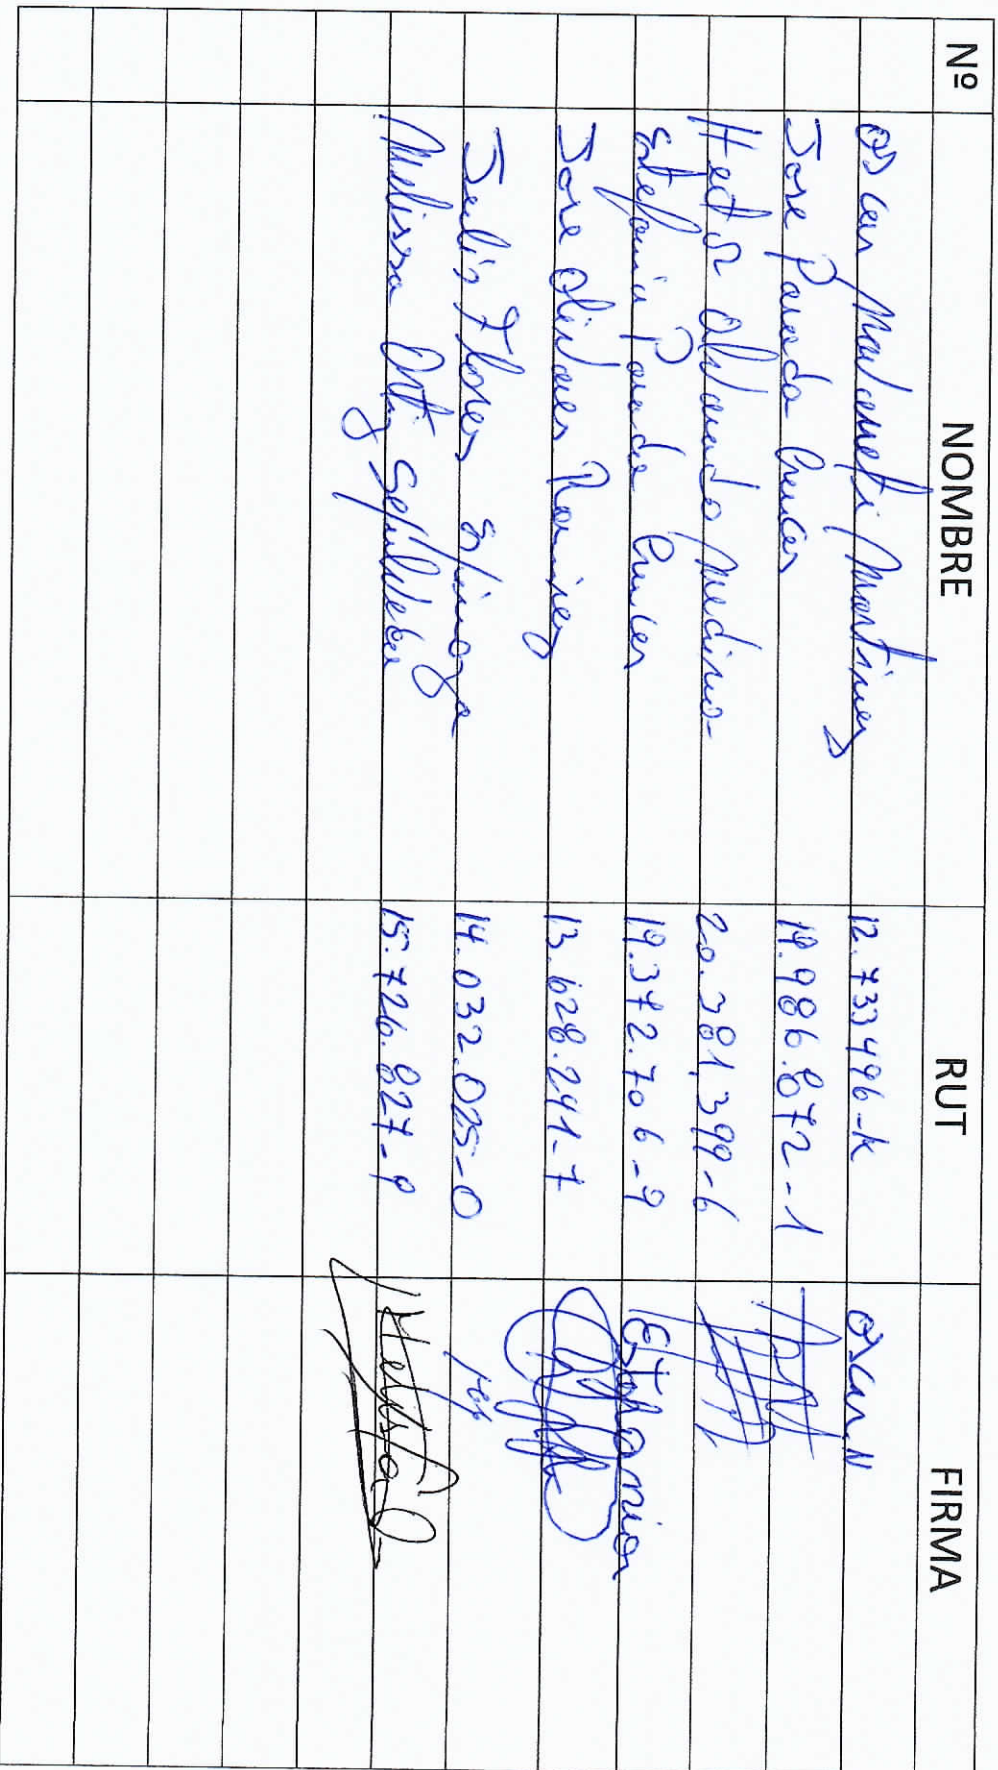 Nº NOMBRE RUT FIRMA
Oscar Martinez 12.733496-k Oscar N
Jose Parada Cruces 19.986.872-1
Hector Alvarado Medina 20.381.399-6
Estefania Parada Cruces 19.372.706-9 EStefania
Jose Olivares Ramirez 13.628.241-7
Julio Flores Espinoza 14.032.025-0
Melissa Ortiz Sepulveda 15.726.827-9